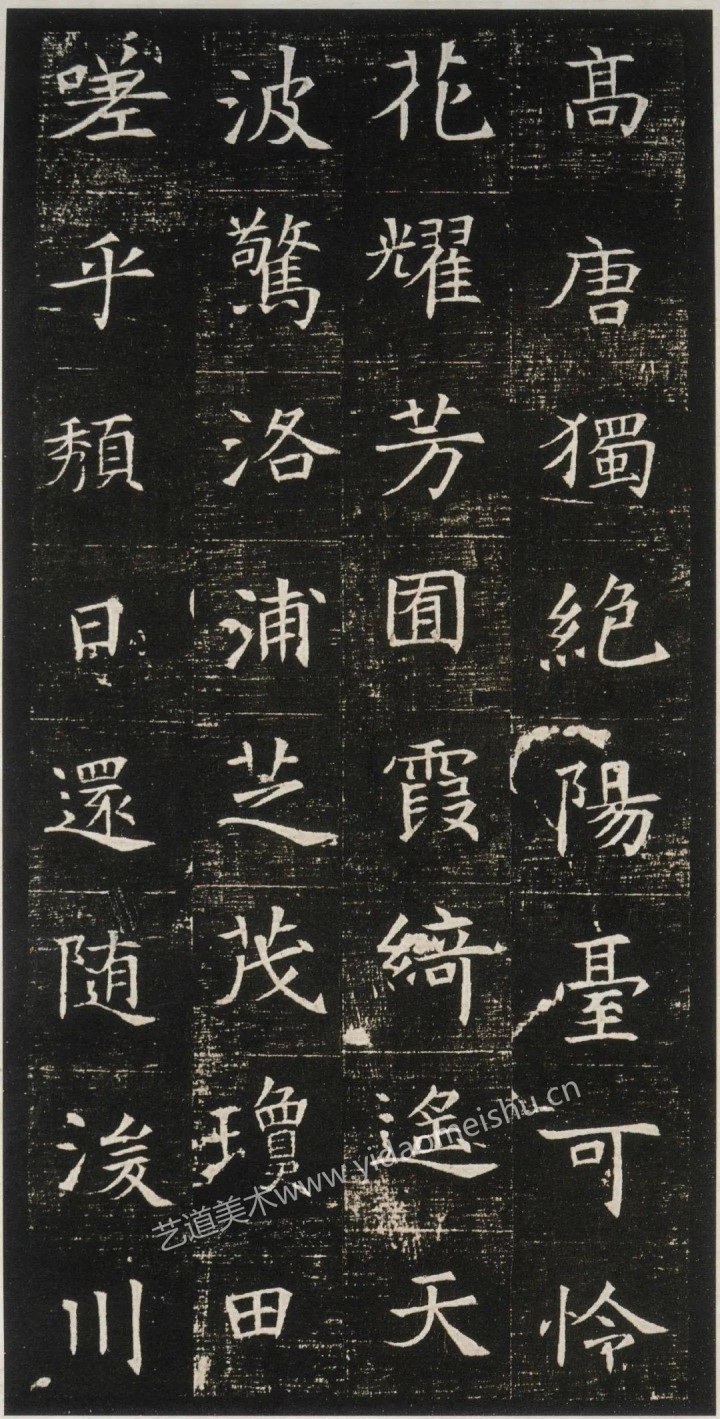 高唐獨絶陽臺可怜
花耀芳囿霞綺遥天
波驚洛浦芝茂瓊田
嗟乎頽日還随浚川
艺道美术www.yidaomeishu.cn